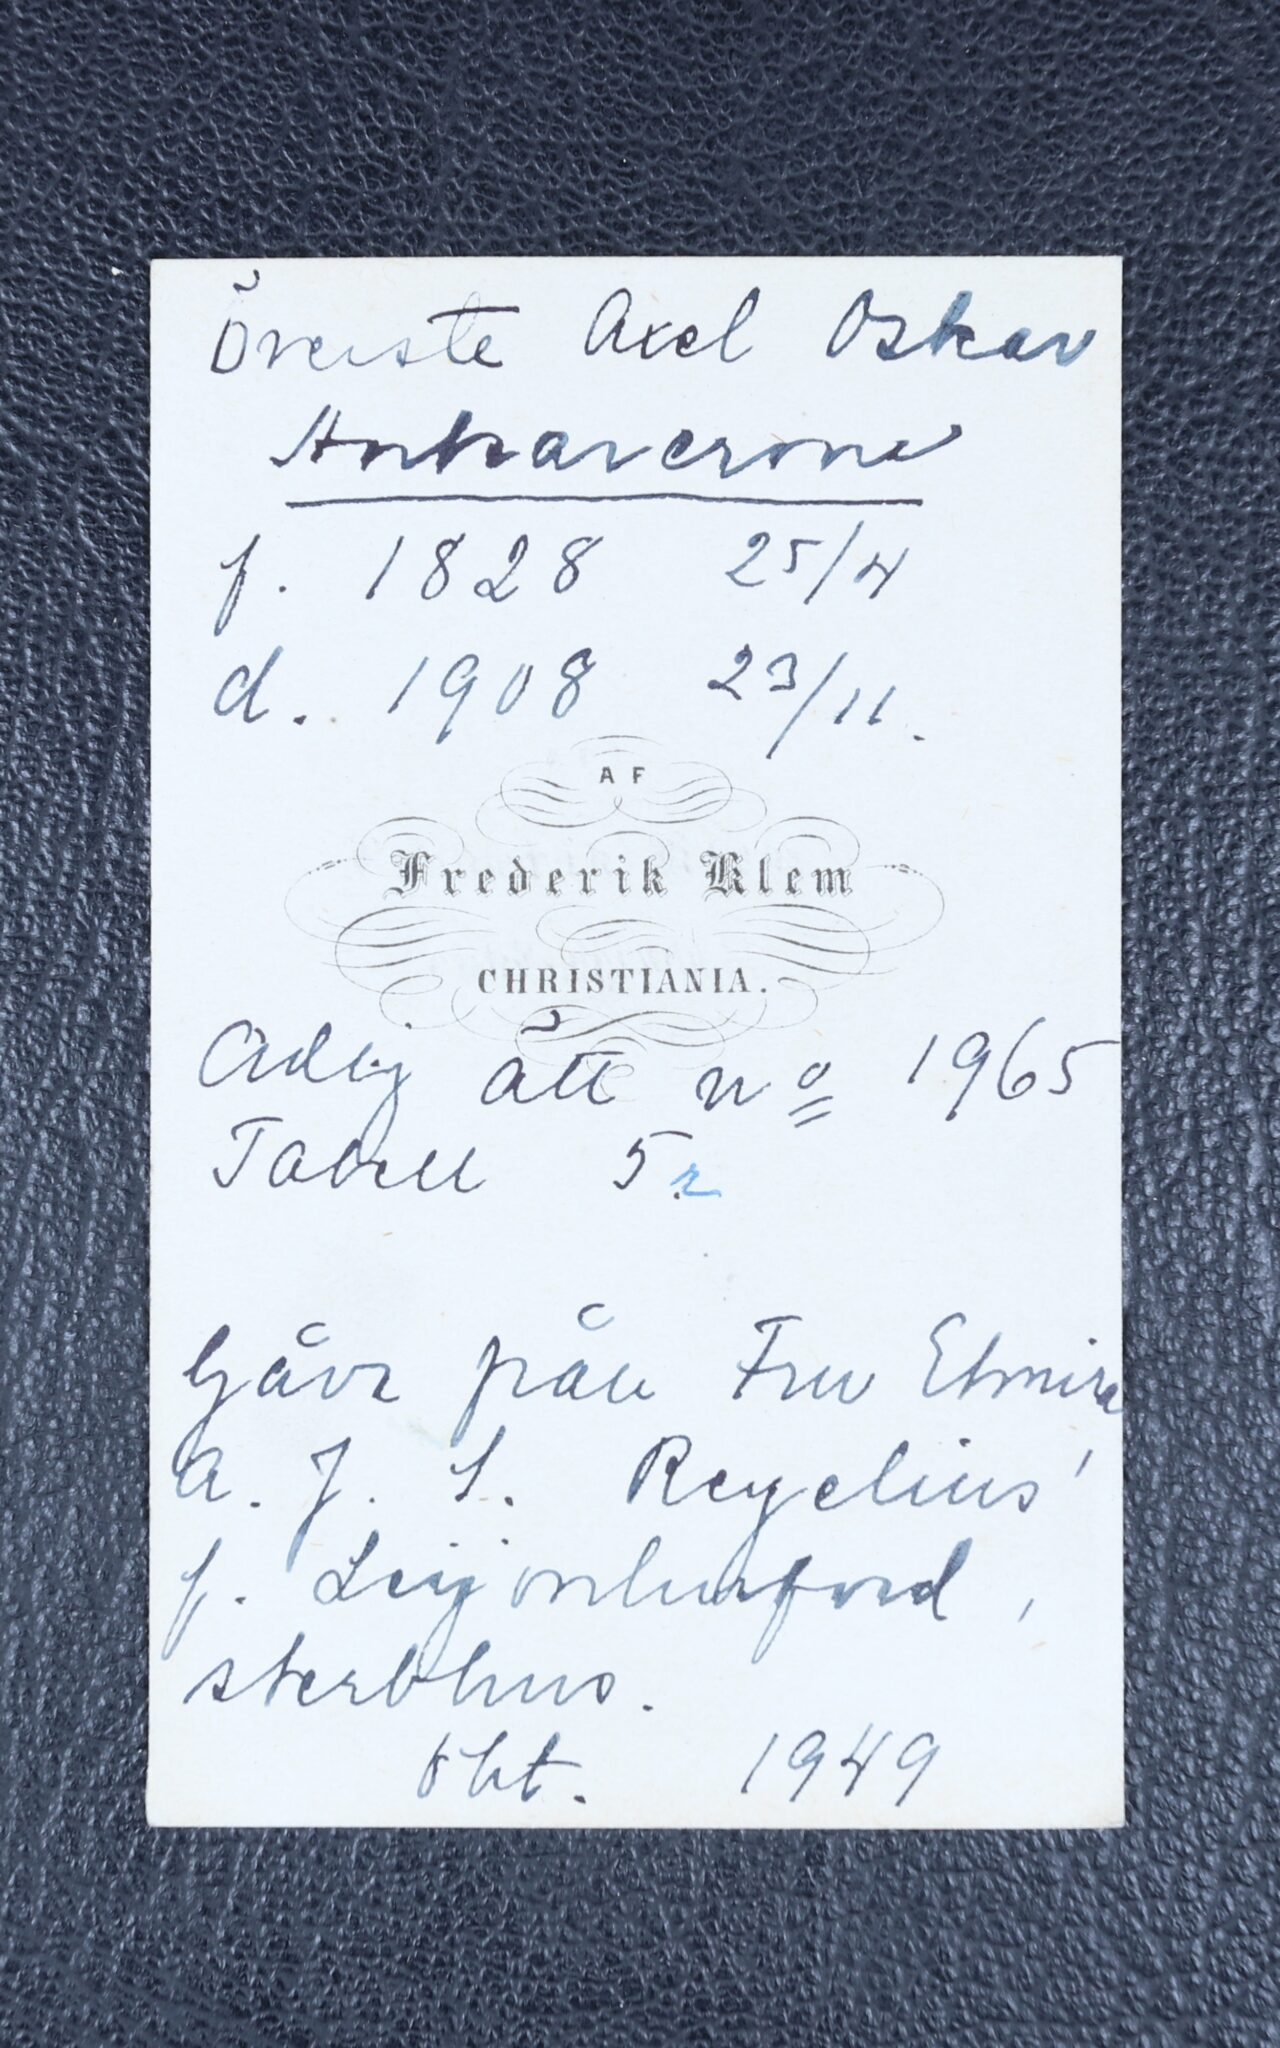 Överste Axel Oskar
Ankarcrona
f. 1828 25/4
d. 1908 23/11.
AF
Frederik Klem
CHRISTIANIA.
Adlig ätt nº 1965
Tabell 5.
Gåva från Fru Elmira
A. J. S. Regelius'
f. Leijonhufvud,
sterbhus.
Okt. 1949